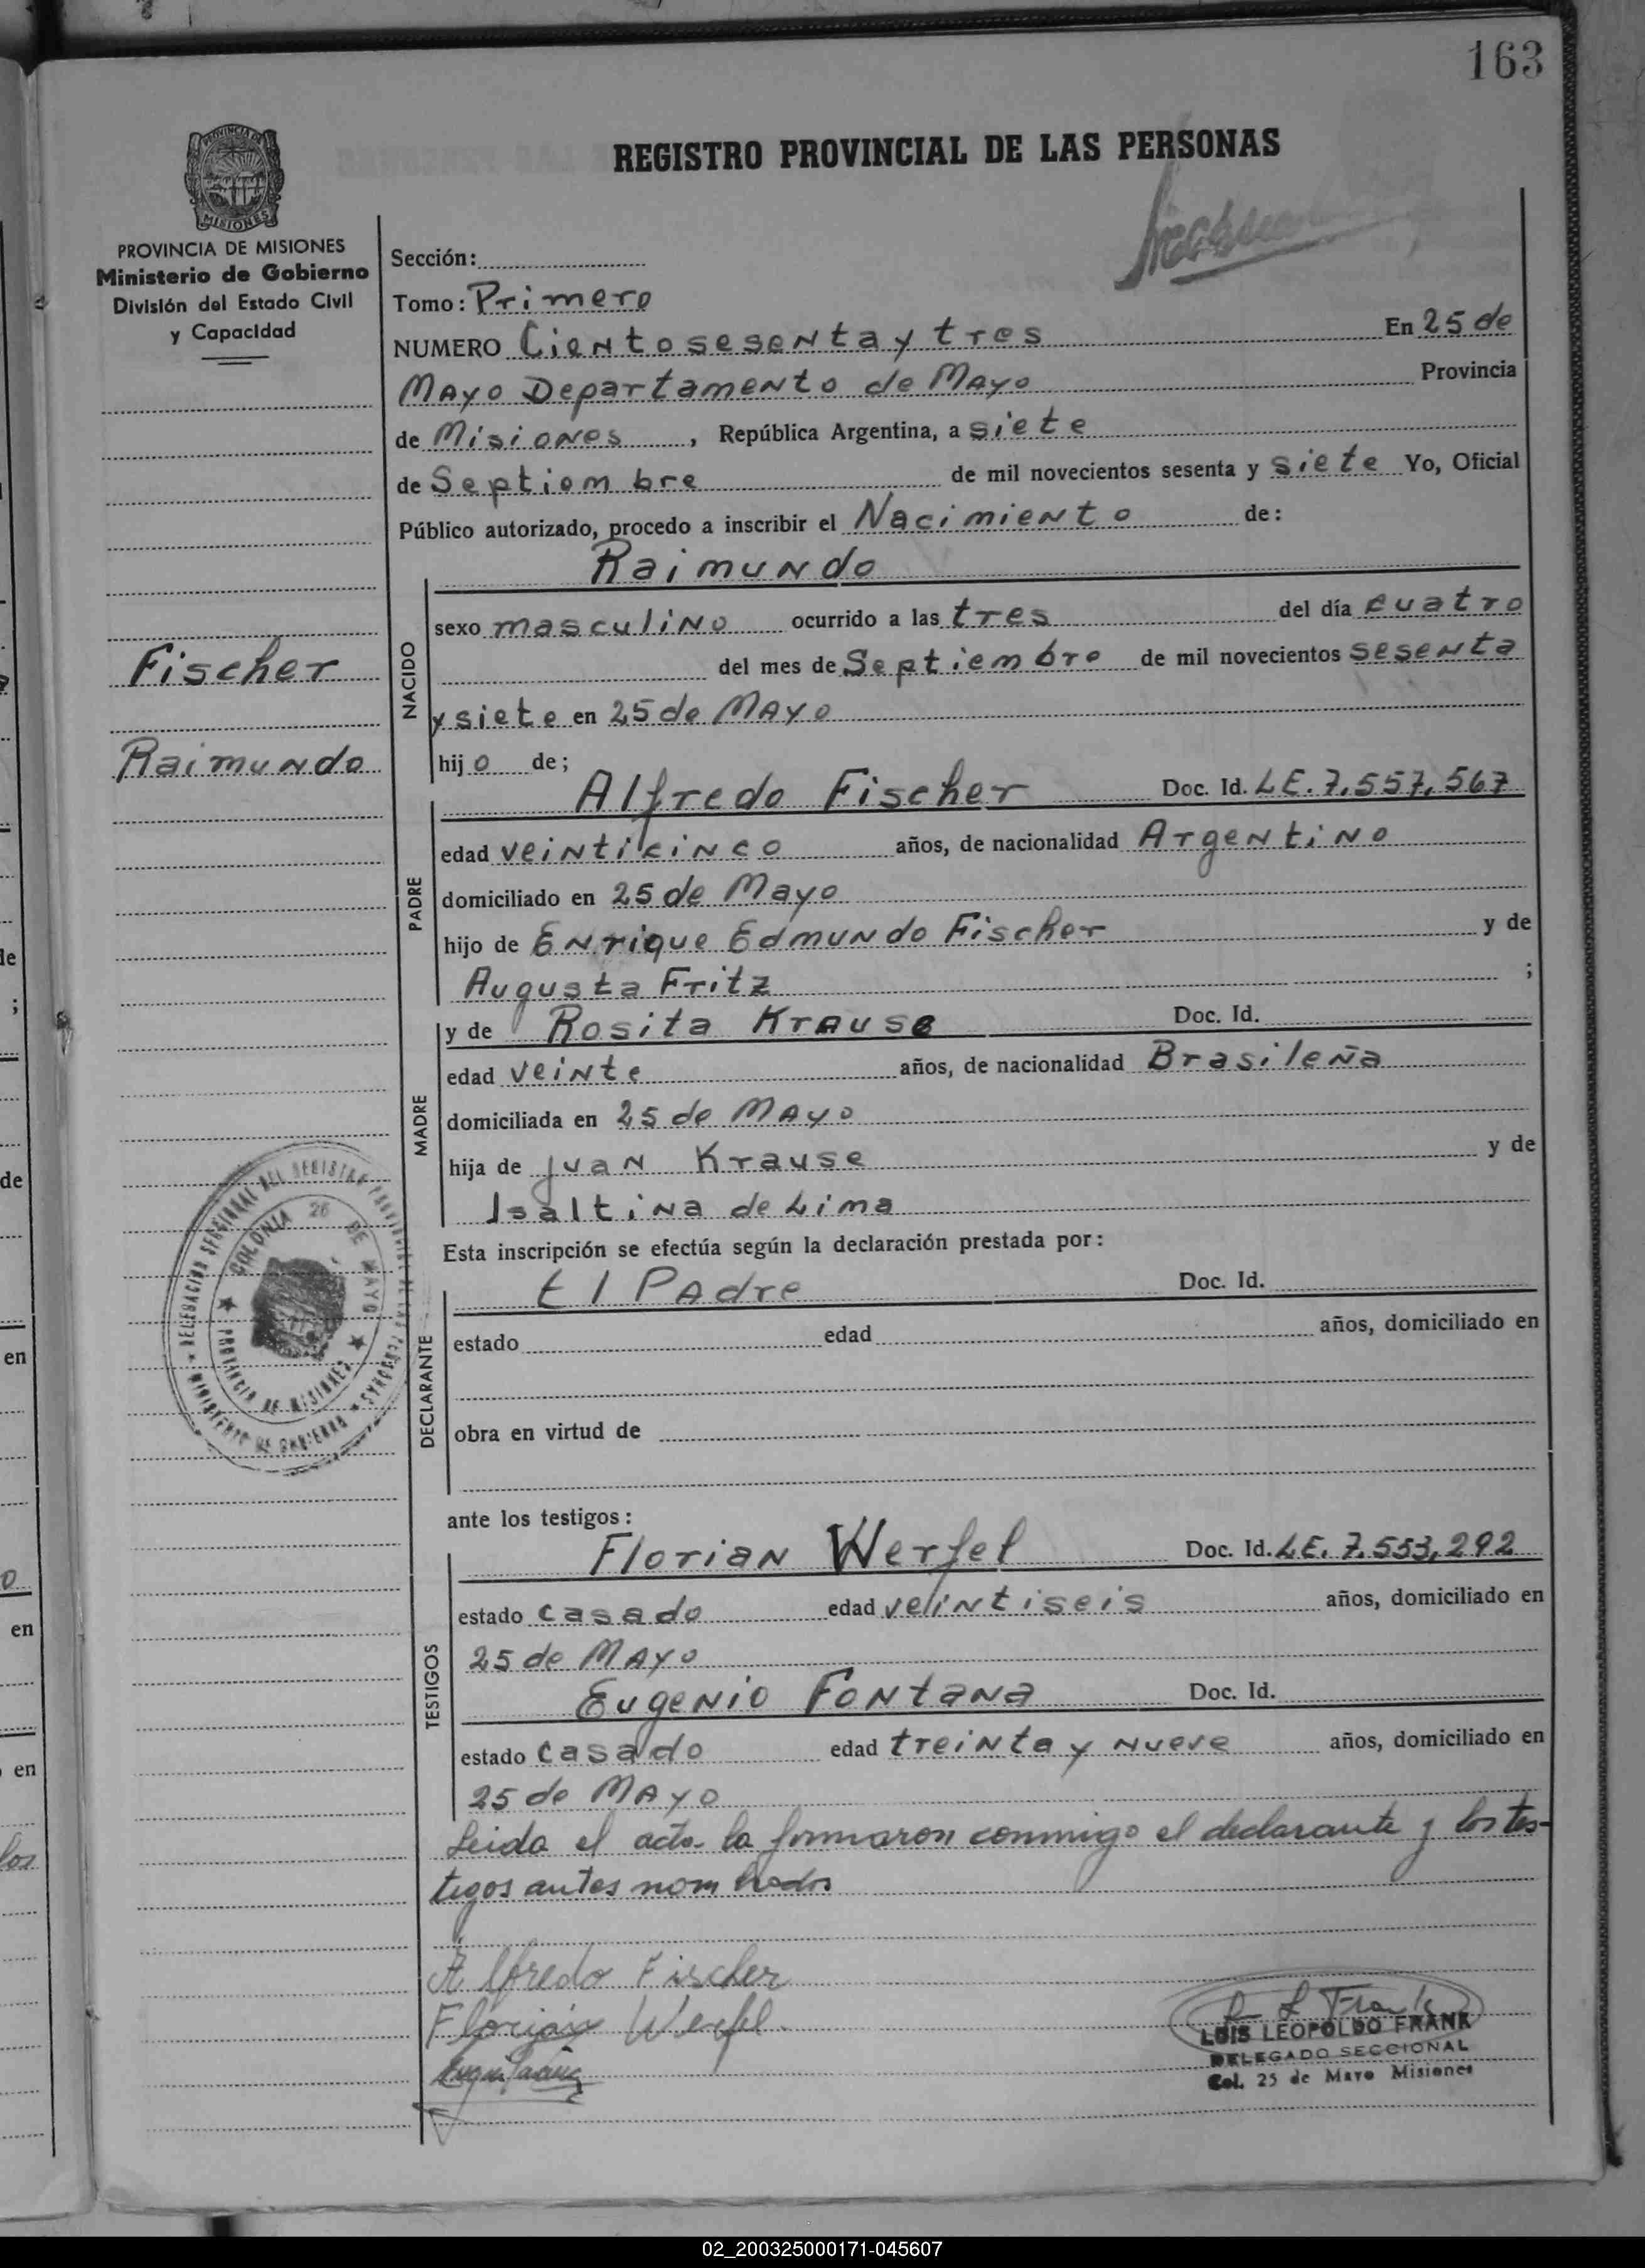 163
REGISTRO PROVINCIAL DE LAS PERSONAS
PROVINCIA DE MISIONES
Ministerio de Gobierno
División del Estado Civil
y Capacidad
Sección:
Tomo: Primero
NUMERO Ciento sesenta y tres En 25 de
Mayo Departamento de Mayo Provincia
de Misiones, República Argentina, a siete
de Septiembre de mil novecientos sesenta y siete Yo, Oficial
Público autorizado, procedo a inscribir el Nacimiento de:
Raimundo
NACIDO
sexo masculino ocurrido a las tres del día cuatro
del mes de Septiembre de mil novecientos sesenta
y siete en 25 de Mayo
hijo de;
Fischer
Raimundo
Alfredo Fischer Doc. Id. LE. 7.557.567
PADRE
edad veinticinco años, de nacionalidad Argentino
domiciliado en 25 de Mayo
hijo de Enrique Edmundo Fischer y de
Augusta Fritz ;
y de Rosita Krause Doc. Id.
MADRE
edad veinte años, de nacionalidad Brasileña
domiciliada en 25 de Mayo
hija de Juan Krause y de
Isaltina de Lima
Esta inscripción se efectúa según la declaración prestada por:
El Padre Doc. Id.
DECLARANTE
estado edad años, domiciliado en
obra en virtud de
ante los testigos:
Florian Werfel Doc. Id. LE. 7.553,292
TESTIGOS
estado casado edad veintiseis años, domiciliado en
25 de Mayo
Eugenio Fontana Doc. Id.
estado casado edad treinta y nueve años, domiciliado en
25 de Mayo
Leida el acta la firmaron conmigo el declarante y los tes-
tigos antes nombrados
Alfredo Fischer
Florian Werfel.
LUIS LEOPOLDO FRANK
DELEGADO SECCIONAL
Col. 25 de Mayo Misiones
02_200325000171-045607